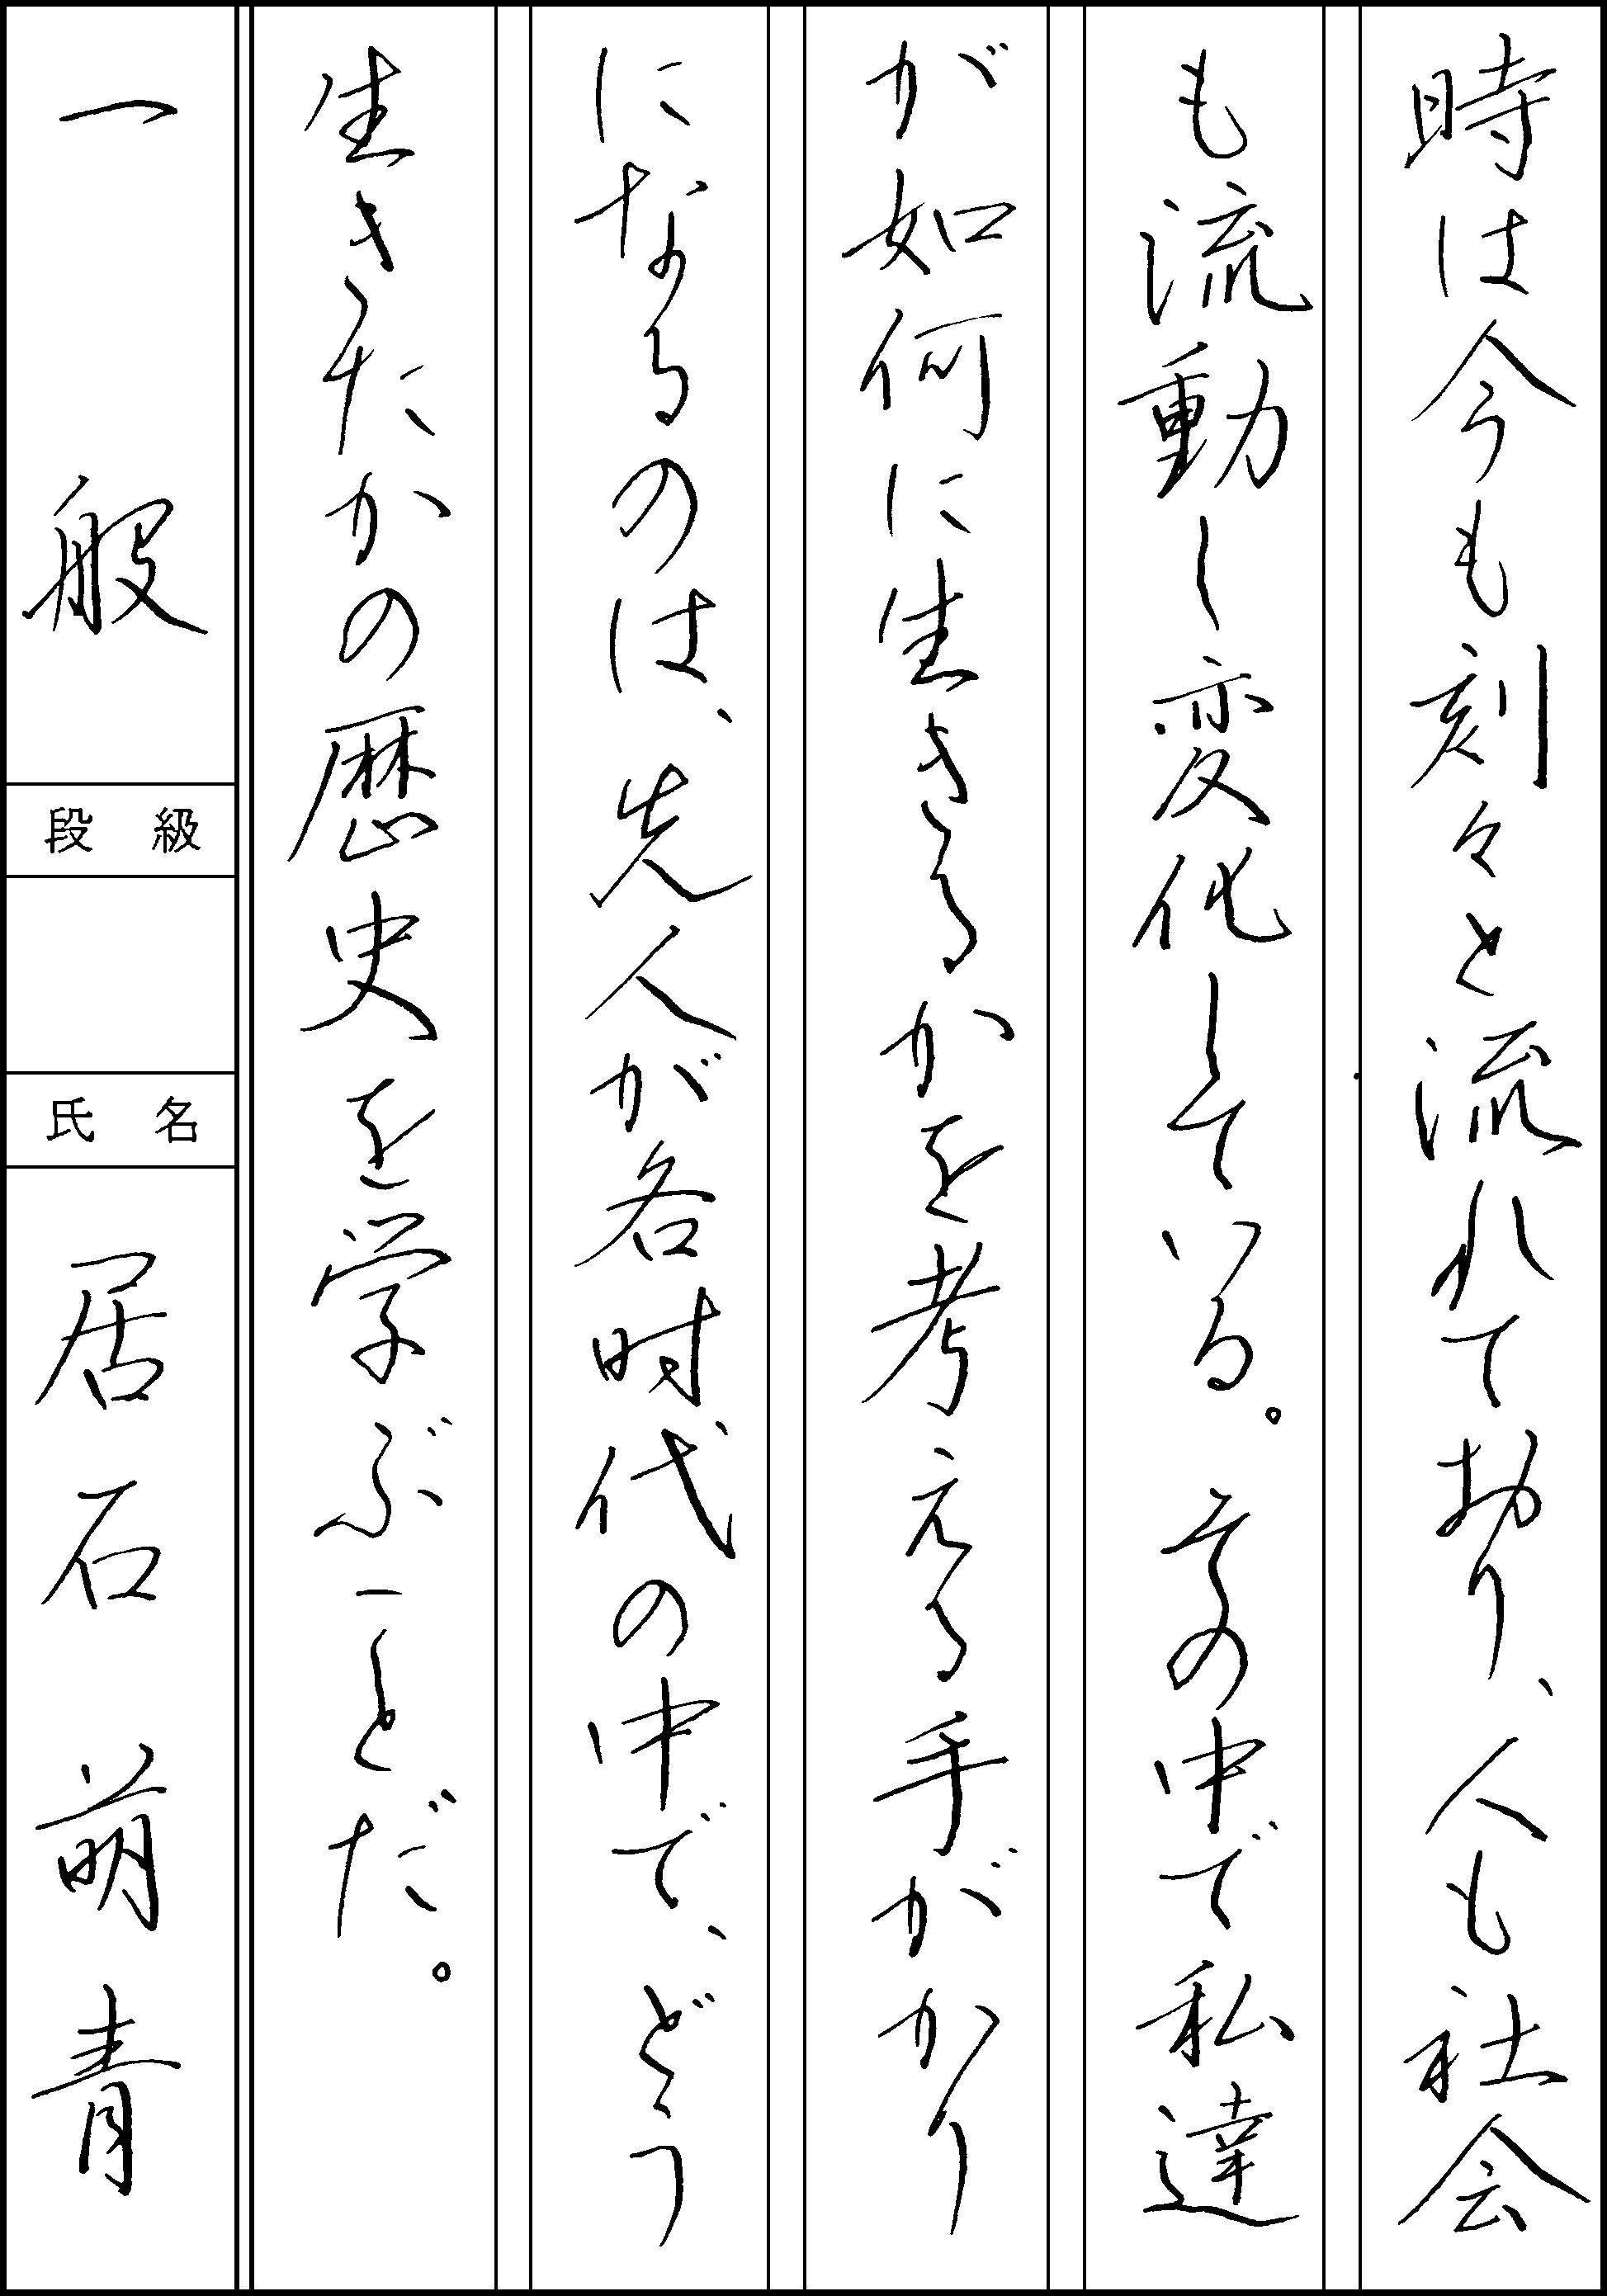 時は今も刻々と流れており、人も社会
も流動し変化している。その中で私達
が如何に生きるかを考える手がかり
になるのは、先人が各時代の中で、どう
生きたかの歴史を学ぶことだ。
一般
段級
氏名
居石萌青